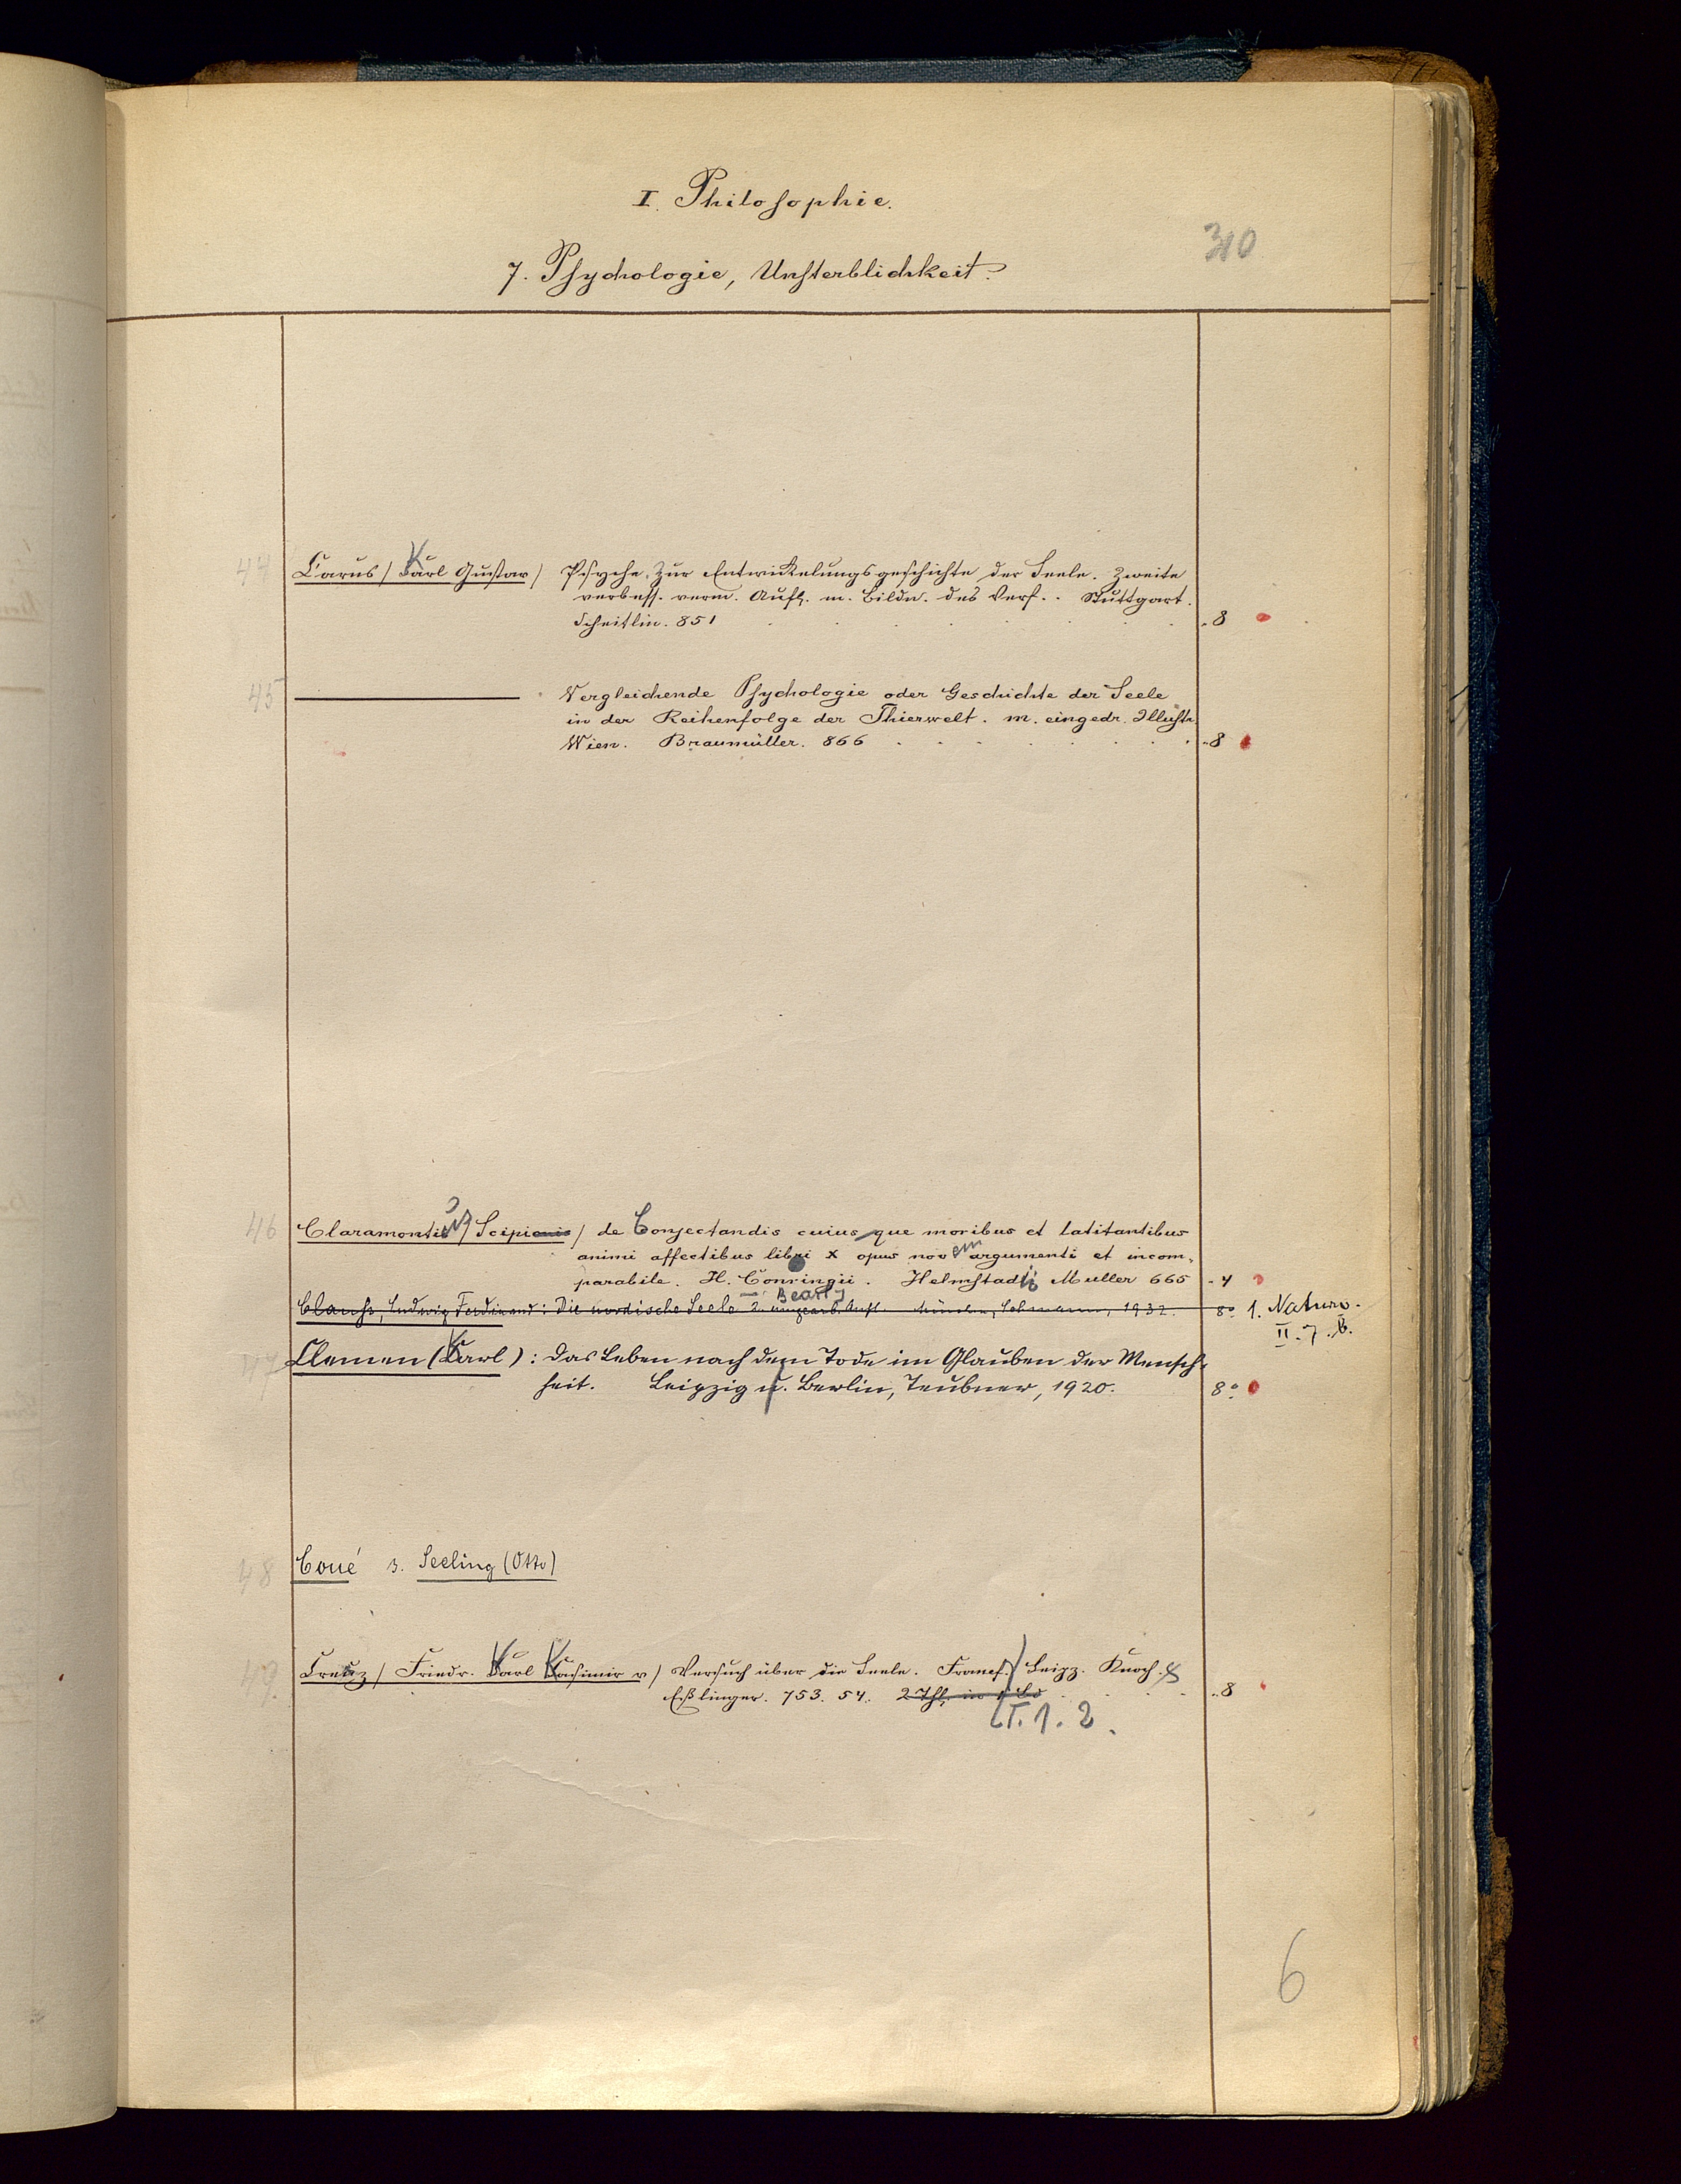 I. Philosophie.
310
7. Psychologie, Unsterblichkeit.
44 Carus / Karl Gustav / Psyche. Zur Entwickelungsgeschichte der Seele. Zweite
verbess. verm. Aufl. m. Bildn. des Verf. . Stuttgart.
Scheitlin. 851 . 8
45 Vergleichende Psychologie oder Geschichte der Seele
in der Reihenfolge der Thierwelt. m. eingedr. Illustr.
Wien. Braumüller. 866 . 8
46 Claramontius / Scipionis / de Conjectandis cuiusque moribus et latitantibus
animi affectibus libri X opus novem argumenti et incom-
parabile. H. Conringii. Helmstadii Muller 665 . 4
Clauß, Ludwig Ferdinand: Die nordische Seele 2. umgearb. Aufl. München, Lehmann, 1932. 8° 1. Naturw.
II. 7. B.
47 Clemen (Karl): Das Leben nach dem Tode im Glauben der Mensch-
heit. Leipzig u. Berlin, Teubner, 1920. 8°
48 Coué s. Seeling (Otto)
49. Creuz / Friedr. Karl Kasimir v / Versuch über die Seele. Francf. / Leipz. Knoch &
Eßlinger. 753. 54. 2 Thl. in 1 Bd . 8
T. 1. 2.
6